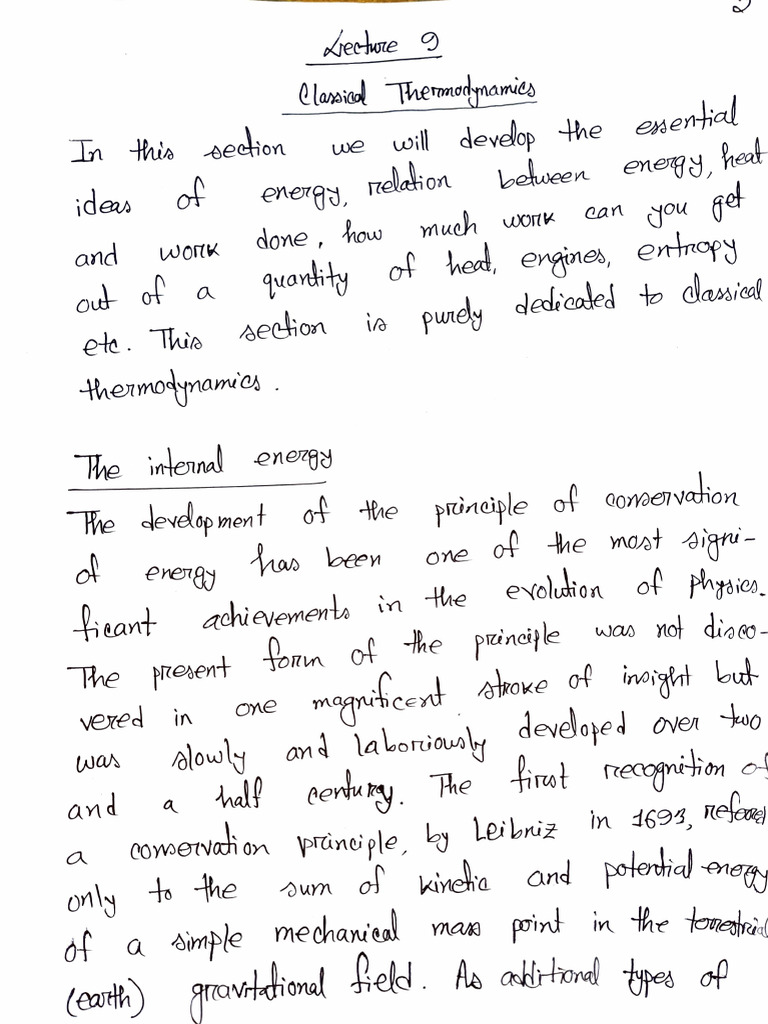 Lecture 9
Classical Thermodynamics
In this section we will develop the essential
ideas of energy, relation between energy, heat
and work done, how much work can you get
out of a quantity of heat, engines, entropy
etc. This section is purely dedicated to classical
thermodynamics.
The internal energy
The development of the principle of conservation
of energy has been one of the most signi-
ficant achievements in the evolution of physics.
The present form of the principle was not disco-
vered in one magnificent stroke of insight but
was slowly and laboriously developed over two
and a half century. The first recognition of
a conservation principle, by Leibniz in 1693, refered
only to the sum of kinetic and potential energy
of a simple mechanical mass point in the terrestrial
(earth) gravitational field. As additional types of